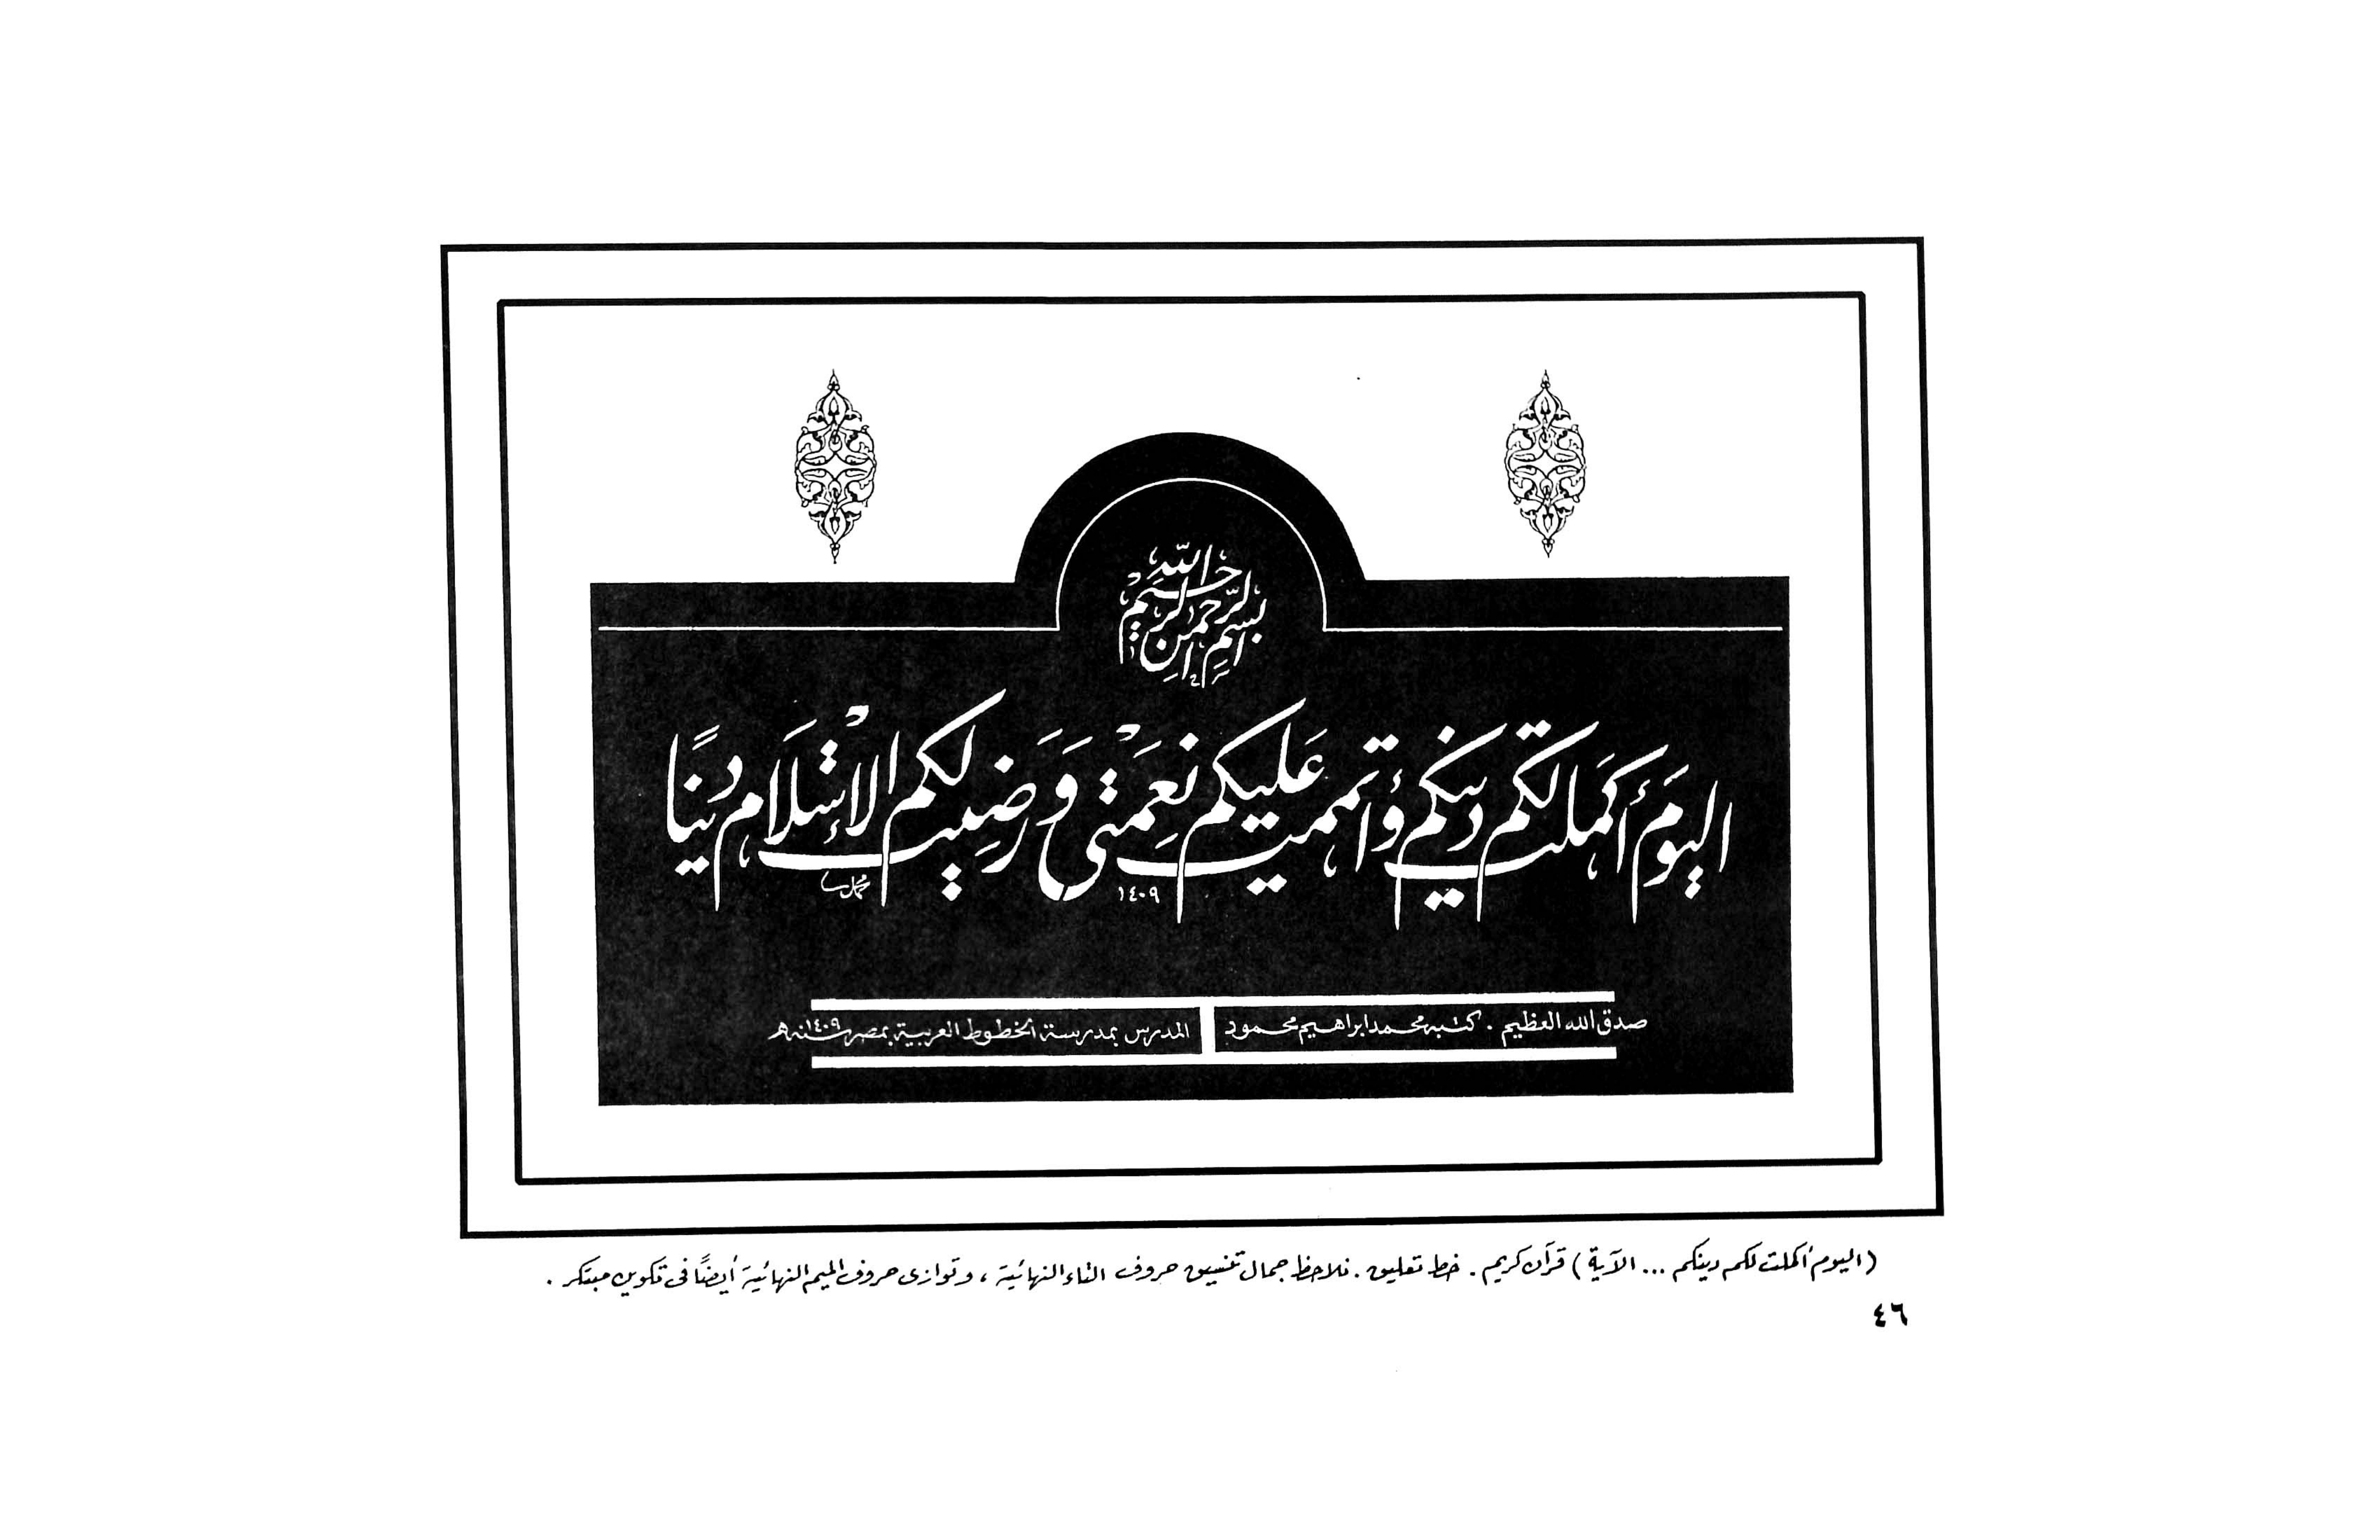 بسم الله الرحمن الرحيم
اليوم أكملت لكم دينكم وأتممت عليكم نعمتى ورضيت لكم الإسلام دينًا
١٤٠٩
صدق الله العظيم . كتبه محمد ابراهيم محمود
المدرس بمدرسة الخطوط العربية بمصر سنة ١٤٠٩ هـ
(اليوم أكملت لكم دينكم ... الآية) قرآن كريم . خط تعليق . نلاحظ جمال تنسيق حروف التاء النهائية ، وتوازى حروف الميم النهائية أيضًا فى تكوين مبتكر .
٤٦